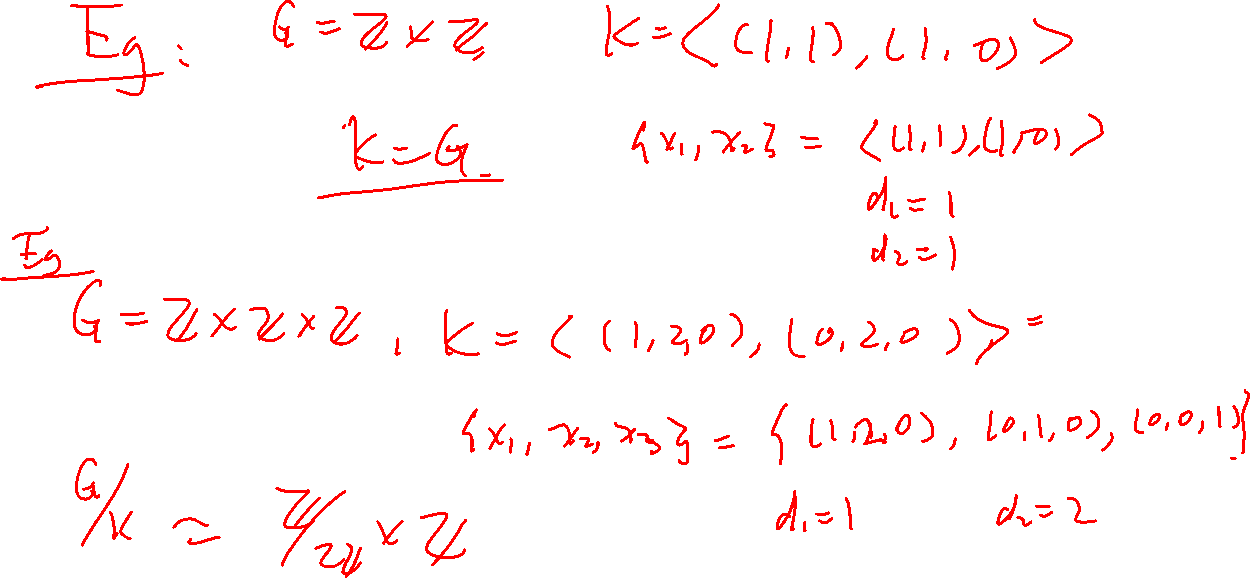 Eg: G = ℤ × ℤ K = <(1,1), (1,0)>
K = G. {x₁, x₂} = <(1,1),(1,0)>
d₁ = 1
d₂ = 1
Eg
G = ℤ × ℤ × ℤ, K = <(1,2,0), (0,2,0)> =
{x₁, x₂, x₃} = {(1,2,0), (0,1,0), (0,0,1)}
G/K ≃ ℤ/2ℤ × ℤ d₁=1 d₂=2